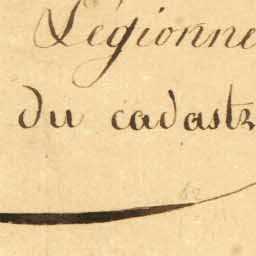 Légionne
du cadast